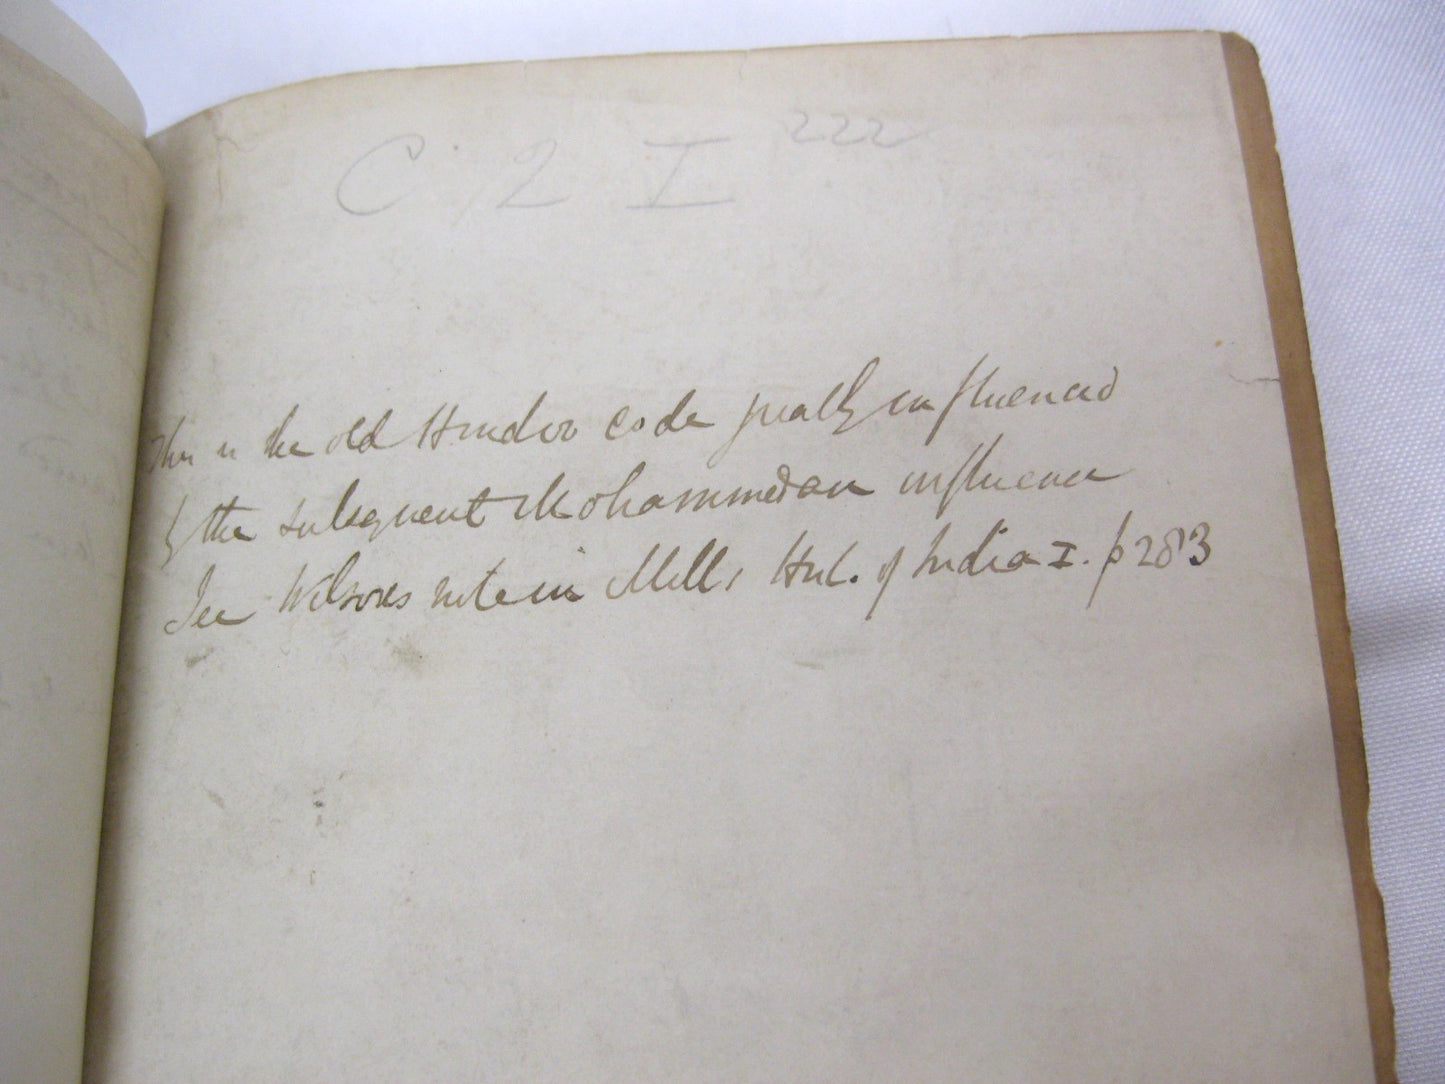 C. 2 I 222
This is the old Hindoo code greatly influenced
by the subsequent Mohammedan influence
See Wilsons note in Mills Hist. of India I. p 283